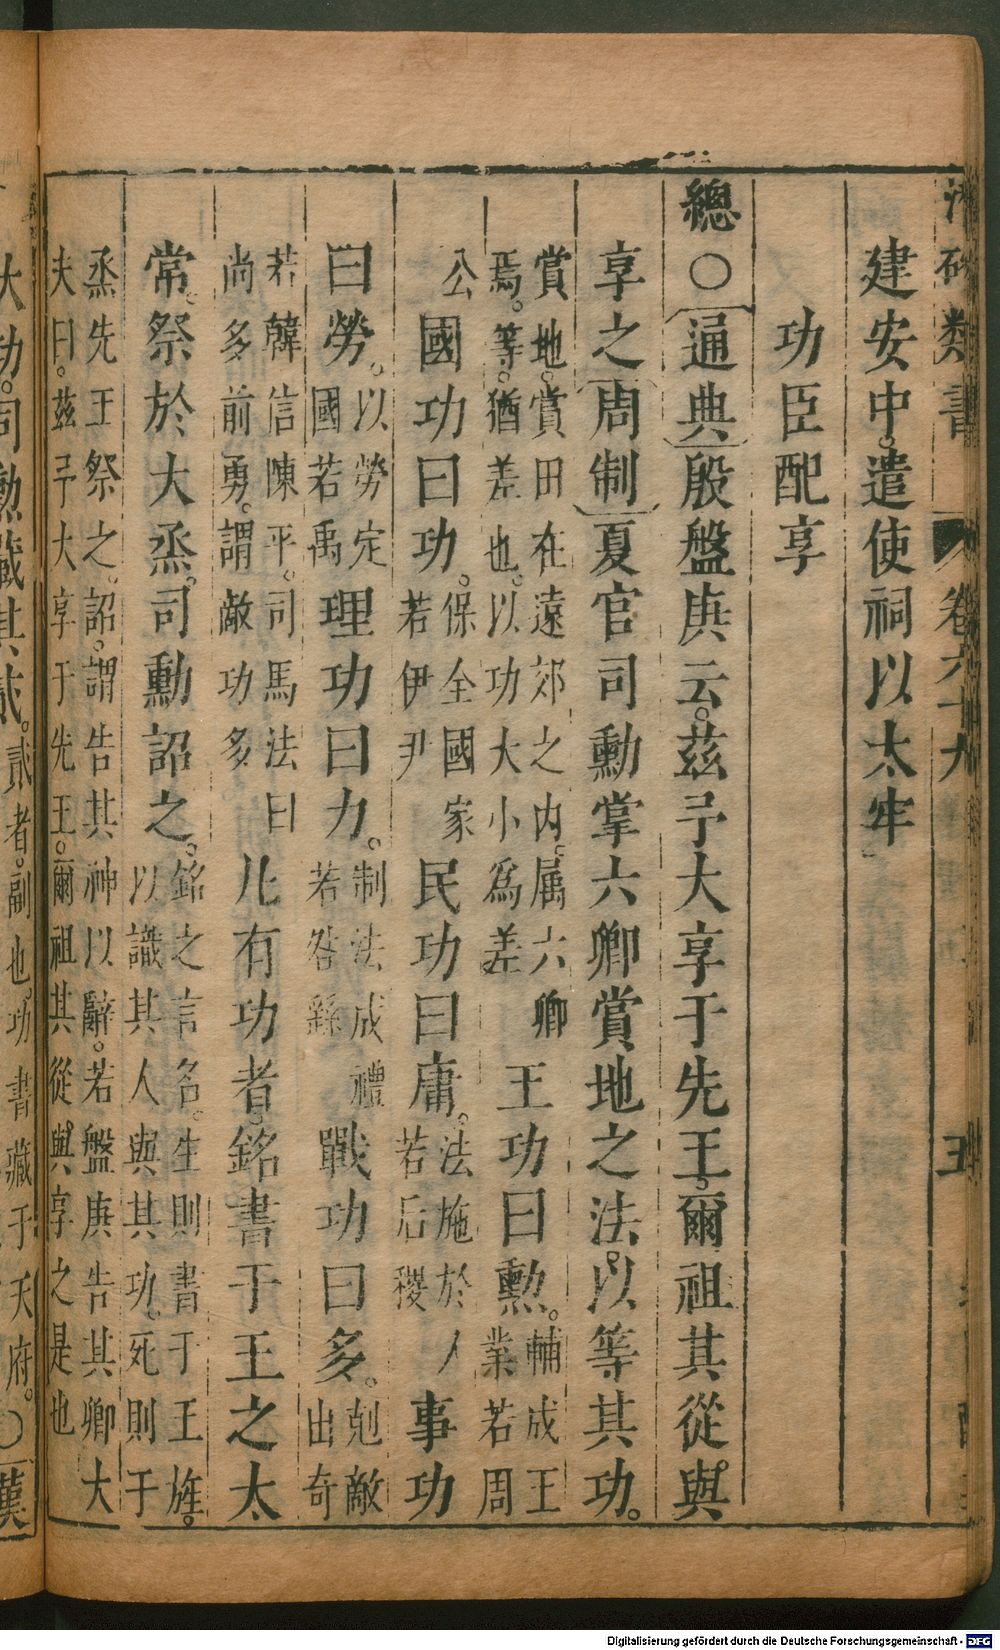 類書 卷六十九 五
建安中。遣使祠以太牢。
功臣配享
總○通典殷盤庚云。茲予大享于先王。爾祖其從與
享之周制夏官司勳掌六卿賞地之法。以等其功。
賞地。賞田在遠郊之內。属六卿
焉。等。猶差也。以功大小為差
王功曰勲。
輔成王
業若周
公
國功曰功。
保全國家
若伊尹
民功曰庸。
法施於人
若后稷
事功
曰勞。
以勞定
國若禹
理功曰力。
制法成禮
若咎繇
戰功曰多。
剋敵
出奇
若韓信陳平。司馬法曰
尚多前勇。謂敵功多
凡有功者。銘書于王之太
常。祭於大烝。司勳詔之。
銘之言名。生則書于王旌。
以識其人與其功。死則于
烝先王祭之。詔。謂告其神以辭。若盤庚告其卿大
夫曰。茲予大享于先王。爾祖其從與享之是也
大功。司勳藏其貳。
貳者。副也。功書藏于天府。
○漢
Digitalisierung gefördert durch die Deutsche Forschungsgemeinschaft - DFG